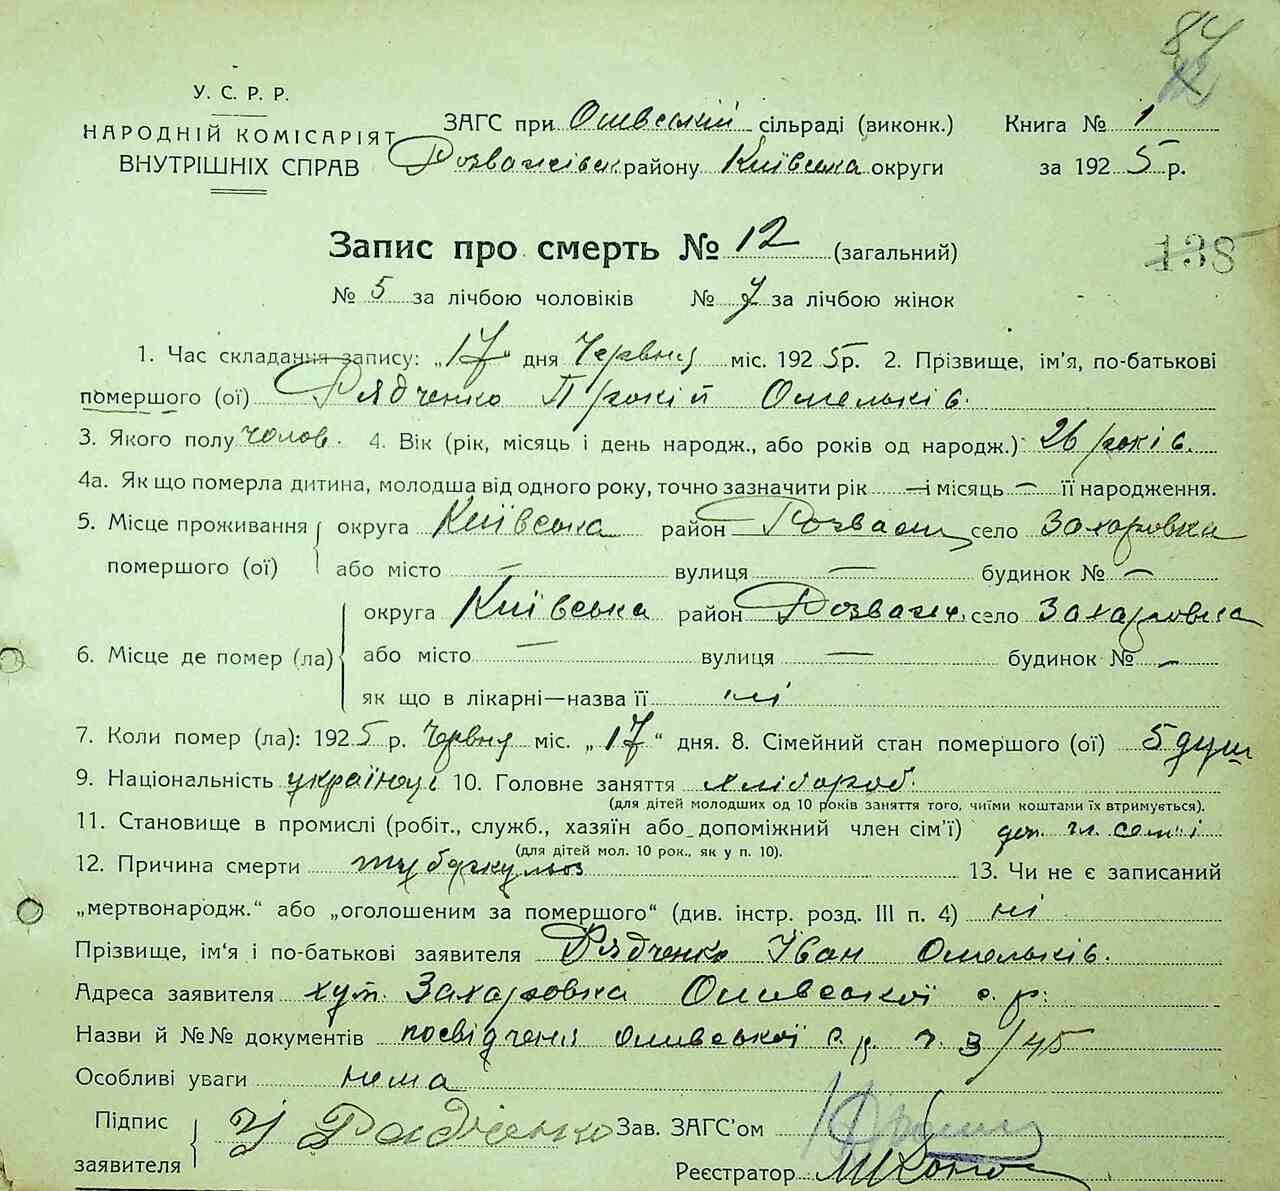 84
У. С. Р. Р.
НАРОДНІЙ КОМІСАРІЯТ
ВНУТРІШНІХ СПРАВ
ЗАГС при Оливській сільраді (виконк.)
Розважівськ. району Київська округи
Книга № 1
за 1925 р.
Запис про смерть № 12 (загальний)
138
№ 5 за лічбою чоловіків № 7 за лічбою жінок
1. Час складання запису: „17 дня Червня міс. 1925р. 2. Прізвище, ім'я, по-батькові
помершого (ої) Рядченко Прокій Омельків.
3. Якого полу чолов. 4. Вік (рік, місяць і день народж., або років од народж.) 26 років.
4а. Як що померла дитина, молодша від одного року, точно зазначити рік — і місяць — її народження.
5. Місце проживання помершого (ої) округа Київська район Розваж село Захаровка
або місто — вулиця — будинок № —
6. Місце де помер (ла) округа Київська район Розваж. село Захаровка
або місто — вулиця — будинок № —
як що в лікарні—назва її ні
7. Коли помер (ла): 1925 р. Червня міс. „17“ дня. 8. Сімейний стан помершого (ої) 5 душ
9. Національність українці 10. Головне заняття хлібороб.
(для дітей молодших од 10 років заняття того, чиїми коштами їх втримується).
11. Становище в промислі (робіт., служб., хазяїн або допоміжний член сім'ї) доп. чл. семьї
(для дітей мол. 10 рок., як у п. 10).
12. Причина смерти туберкульоз 13. Чи не є записаний
„мертвонародж.“ або „оголошеним за помершого“ (див. інстр. розд. III п. 4) ні
Прізвище, ім'я і по-батькові заявителя Рядченко Іван Омельків.
Адреса заявителя хут. Захаровка Оливської с. р.
Назви й №№ документів посвідченя Оливської с. р. ч. 3/45
Особливі уваги нема
Підпис заявителя І Радченко
Зав. ЗАГС'ом
Реєстратор